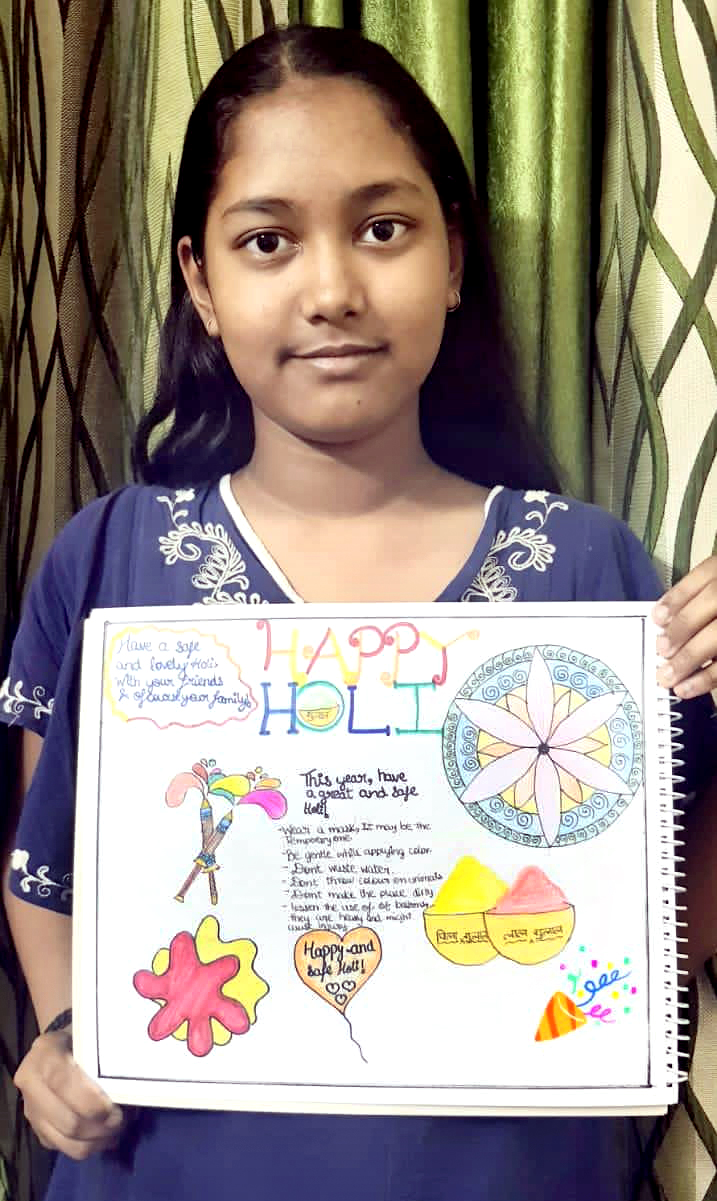 Have a safe
and lovely Holi
with your friends
& of course your family!
HAPPY
HOLI
गुलाल
This year, have
a great and safe
Holi!
-Wear a mask, It may be the
Temporary one.
-Be gentle while applying color.
- Dont waste water.
- Dont throw colour on animals
- Dont make the place dirty
- lessen the use of of baloons,
they are heavy and might
cause injury.
पिला गुलाल
लाल गुलाल
Happy and
safe Holi!